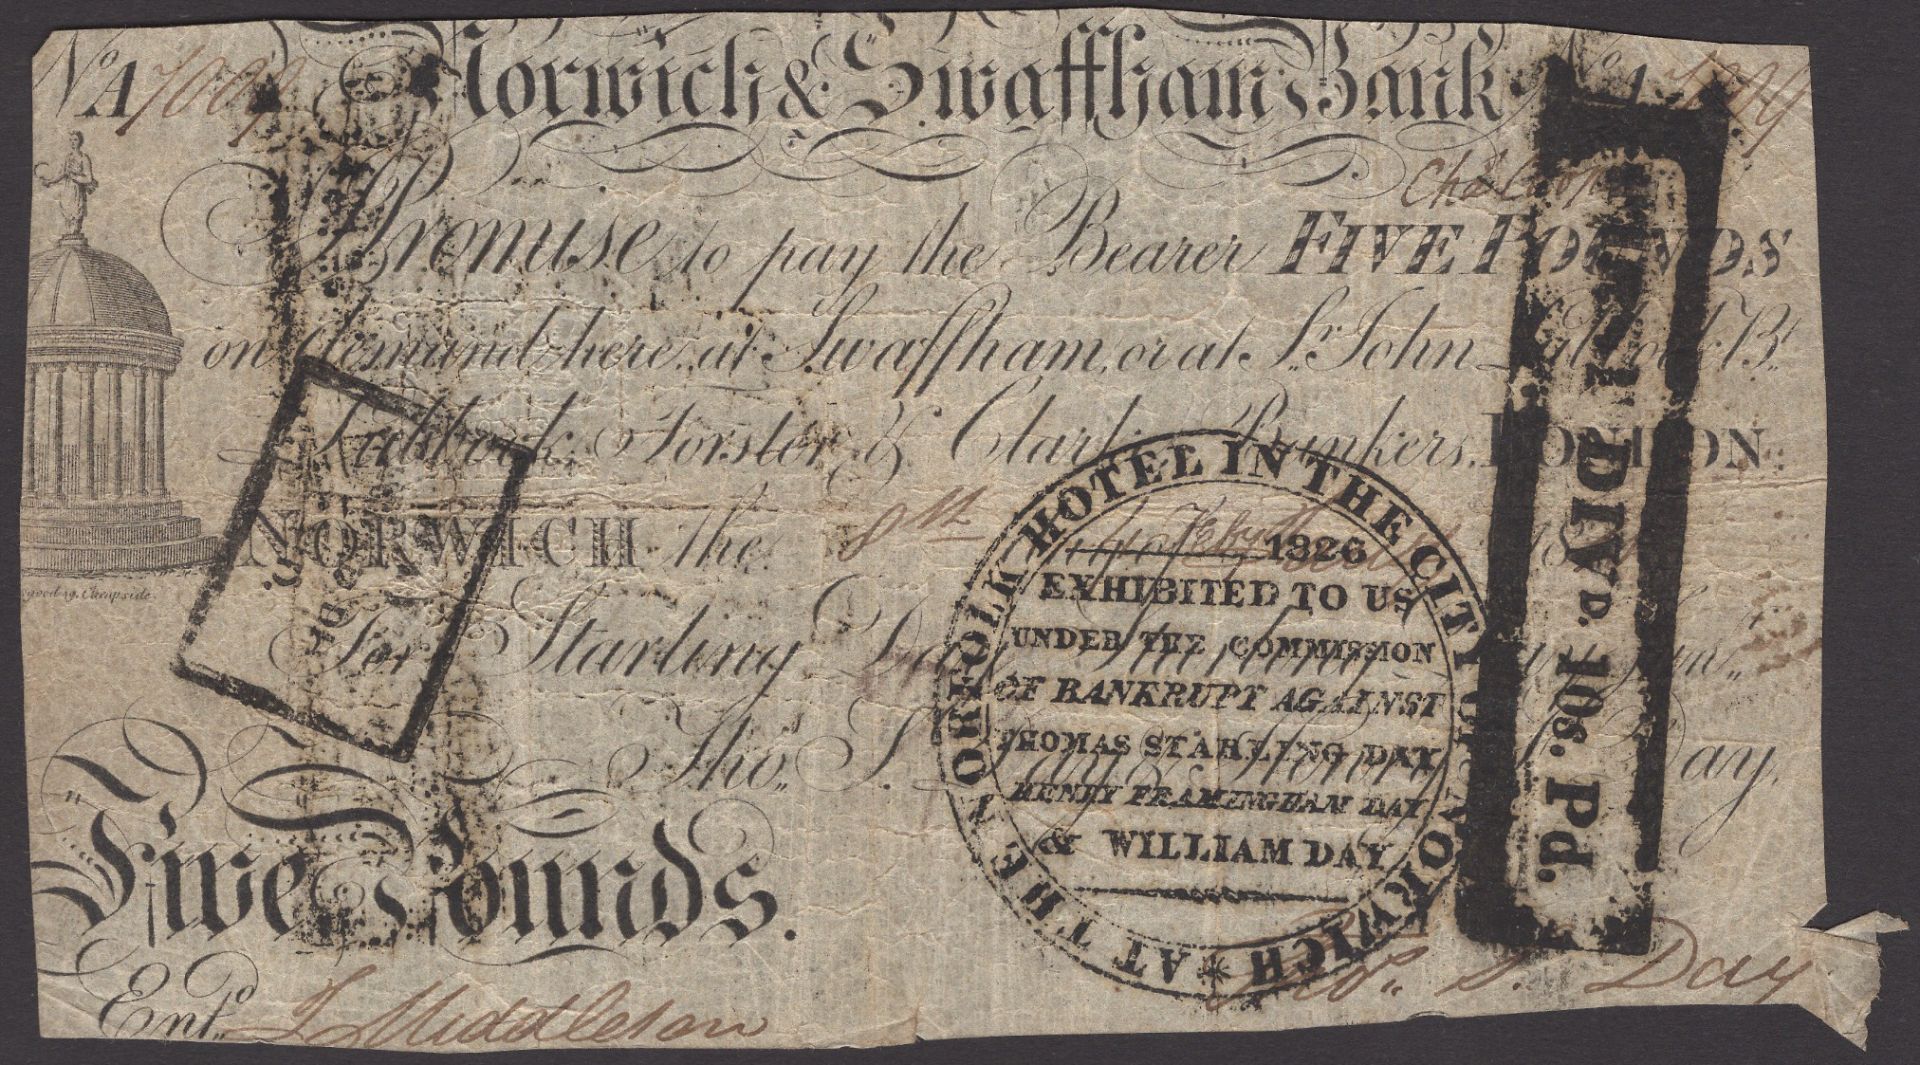 No A 7009 Norwich & Swaffham Bank No A 7009
Chas Coop
I Promise to pay the Bearer FIVE POUNDS
on demand here, at Swaffham, or at Sr. John Lubbock Bt.
Lubbock, Forster & Clarke Bankers, LONDON.
NORWICH the 8th
For Starling Day
Thos. S. Day & Henry Day,
Five Pounds.
Ent.d J Middleton
Thos. S. Day
Cheapside.
AT THE NORFOLK HOTEL IN THE CITY OF NORWICH
1826
EXHIBITED TO US
UNDER THE COMMISSION
OF BANKRUPT AGAINST
THOMAS STARLING DAY
HENRY FRAMINGHAM DAY
& WILLIAM DAY
DIVD. 10s. Pd.